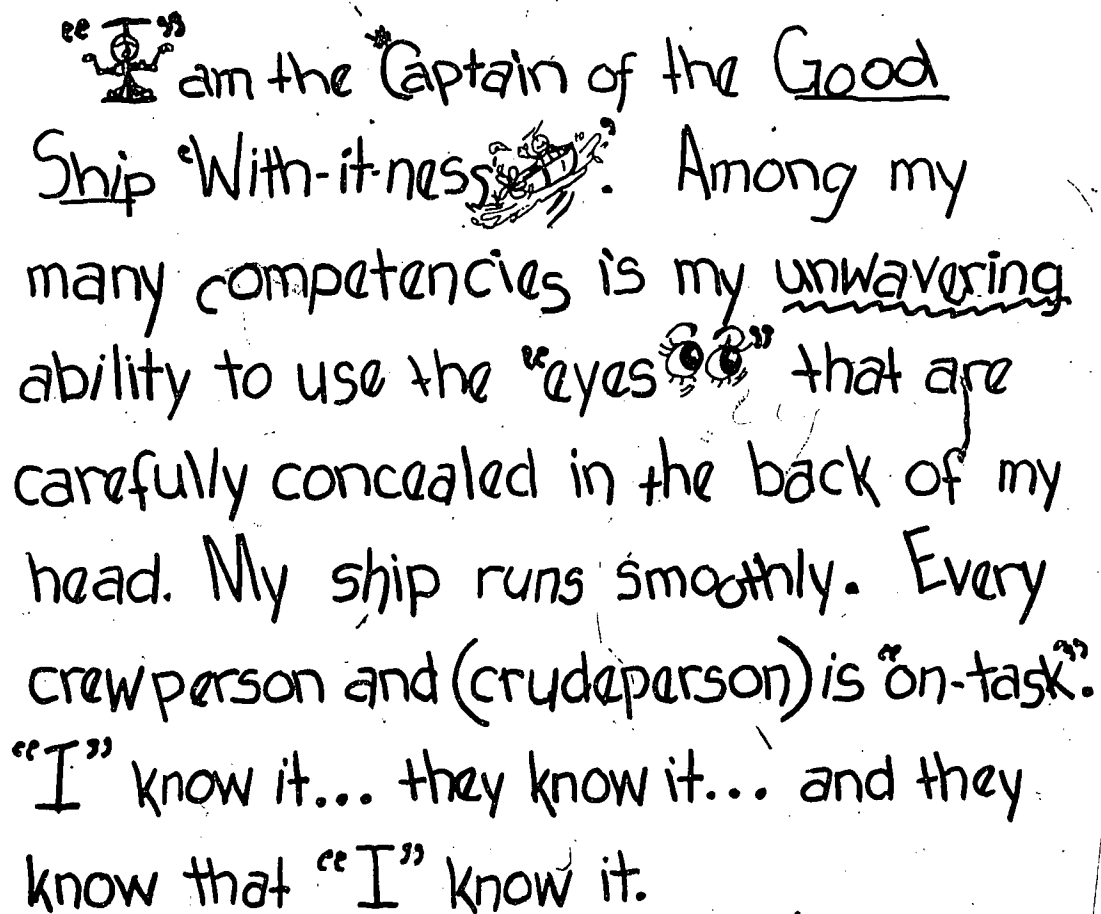 “I” am the Captain of the Good
Ship “With-it-ness”. Among my
many competencies is my unwavering
ability to use the “eyes” that are
carefully concealed in the back of my
head. My ship runs smoothly. Every
crewperson and (crudeperson) is “on-task”.
“I” know it... they know it... and they
know that “I” know it.